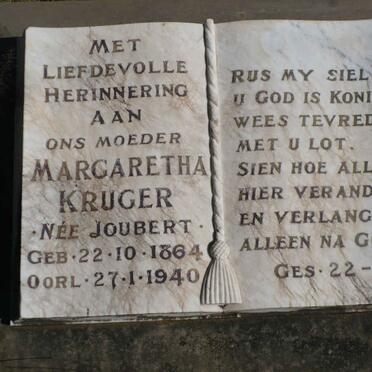 MET
LIEFDEVOLLE
HERINNERING
AAN
ONS MOEDER
MARGARETHA
KRUGER
·NÉE JOUBERT·
GEB·22·10·1864
OORL·27·1·1940
RUS MY SIEL
U GOD IS
WEES
MET U LOT.
SIEN HOE
HIER
EN
ALLEEN NA
GES·22-